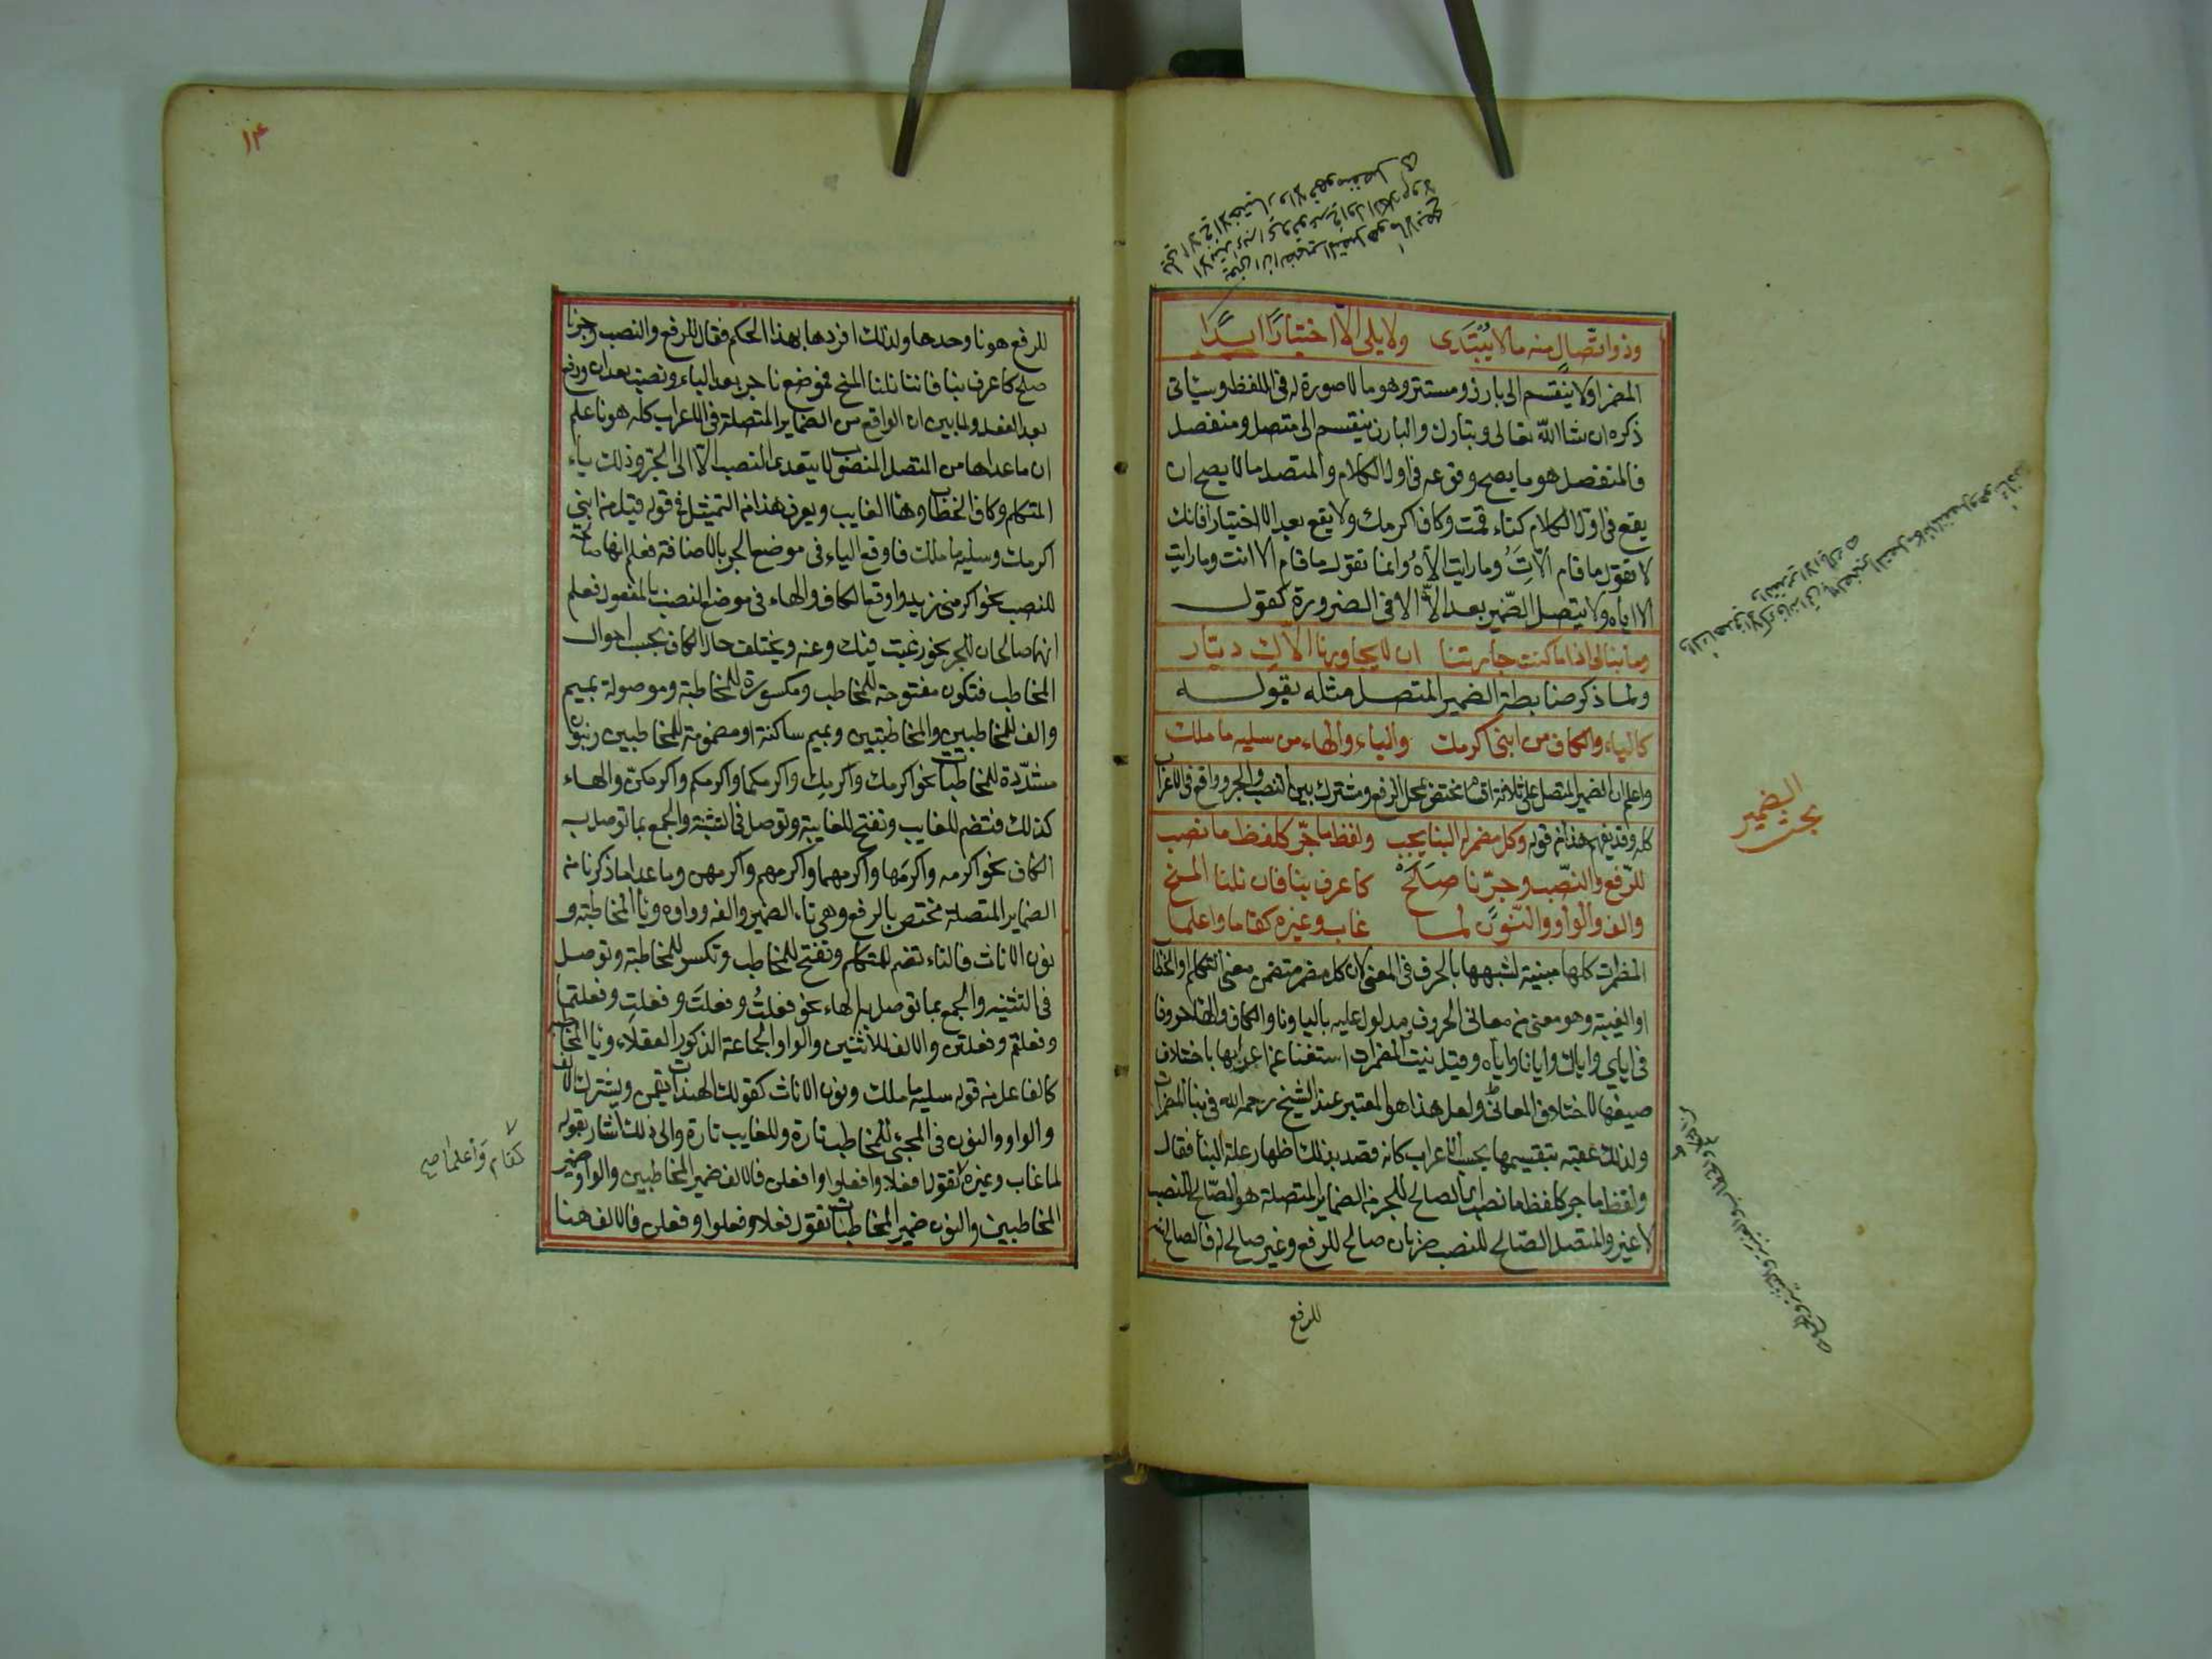 وذو اتّصالٍ منه ما لا يُبْتَدَى ولا يلى الّا اختيارًا ابدًا
المضمر اولا ينقسم الى بارز ومستتر وهو ما لا صورة له فى اللفظ وسياتى
ذكره ان شا الله تعالى وتبارك والبارز ينقسم الى متصل ومنفصل
فالمنفصل هو ما يصح وقوعه فى اول الكلام والمتصل ما لا يصح ان
يقع فى اول الكلام كتاء قمت وكاف اكرمك ولا يقع بعد الا اختيارا فانك
لا تقول ما قام الّاتَ وما رايت الّاهُ وانما تقول ما قام الا انت وما رايت
الا اياه ولا يتصل الضّمير بعد الاّ الا فى الضرورة كقول
وما نبالى اذا ما كنت جارتنا ان لا يجاورنا الّاكِ ديّار
ولما ذكر ضابطة الضمير المتصل مثله بقوله
كالياء والكاف من ابنى اكرمك والياء والهاء من سليه ما ملك
واعلم ان الضمير المتصل على ثلاثة اقسام مختص بمحل الرفع ومشترك بين النصب والجر وواقع فى الاعراب
كله وقد يفهم هذا من قوله وكل مضمر له البنا يجب ولفظ ما جّر كلفظ ما نصب
للرّفع والنّصب وجرّنا صَلَحْ كاعرف بنا فان نلنا المنح
والف والواو والنّون لما غاب وغيره كقاما واعلما
المضمرات كلها مبنية لشبهها بالحرف فى المعنى لان كل مضمر متضمن معنى التكلم والخطاب
او الغيبة وهو معنى من معانى الحروف مدلول عليه باليا ونا والكاف والها حروفا
فى اياي واياك وايانا واياه وقيل بنيت المضمرات استغنا عن اعرابها باختلاف
صيغها لاختلاف المعانى ولعل هذا هو المعتبر عند الشيخ رحمه الله فى بنا المضمرات
ولذلك عقبه بتقسيمها بحسب الاعراب كانه قصد بذلك اظهار علة البنا فقال
ولفظ ما جر كلفظ ما نصب اى الصالح للجر من الضماير المتصلة هو الصّالح للنصب
لا غير والمتصل الصّالح للنصب ضربان صالح للرفع وغير صالح له فالصالح منه
للرفع
بحث الضمير
١٤
للرفع هو نا وحدها ولذلك افردها بهذا الحكم فقال للرفع والنصب وجرنا
صلح كاعرف بنا فاننا نلنا المنح فموضع نا جر بعد الياء ونصب بعد ان ورفع
بعد الفعل ولما بين ان الواقع من الضماير المتصلة فى الاعراب كله هو نا علم
ان ما عداها من المتصل المنصوب لا يتعدى النصب الّا الى الجر وذلك ياء
المتكلم وكاف الخطاب وها الغايب ويعرف هذا من التمثيل فى قوله قبل من ابنى
اكرمك وسليه ما ملك فاوقع الياء فى موضع الجر بالاضافة فعلم انها صالحة
للنصب نحو اكرمنى زيد واوقع الكاف والهاء فى موضع النصب بالمفعول فعلم
انهما صالحان للجر نحو رغبت فيك وعنه ويختلف حال الكاف بحسب احوال
المخاطب فتكون مفتوحة للمخاطب ومكسورة للمخاطبة وموصولة بميم
والف للمخاطبين والمخاطبتين وبميم ساكنة او مضمومة للمخاطبين وبنون
مشدّدة للمخاطبات نحو اكرمك واكرمكِ واكرمكما واكرمكم واكرمكنّ والهاء
كذلك فتضم للغايب وتفتح للغايبة وتوصل فى التثنية والجمع بما توصل به
الكاف نحو اكرمه واكرمَها واكرمهما واكرمهم واكرمهن وما عدا ما ذكرنا من
الضماير المتصلة مختص بالرفع وهى تاء الضمير والفه وواوه ويا المخاطبة و
نون الاناث فالتاء تضم للمتكلم وتفتح للمخاطب وتكسر للمخاطبة وتوصل
فى التثنيه والجمع بما توصل به الهاء نحو فعلتُ وفعلتَ وفعلتِ وفعلتما
وفعلتم وفعلتن والالف للاثنين والواو لجماعة الذكور العقلاء ويا المخاطبة
كالفاعل من قوله سليه ما ملك ونون الاناث كقولك الهندات يقمن ويشترك الالف
والواو والنون فى المجئ للمخاطب تارة وللغايب تارة والى ذلك اشار بقوله
لما غاب وغيره تقول افعلا وافعلوا وافعلن فالالف ضمير المخاطبين والواو ضمير
المخاطبين والنون ضمير المخاطبات وتقول فعلا وفعلوا وفعلن فالالف هنا
كقام وَاعلما صح